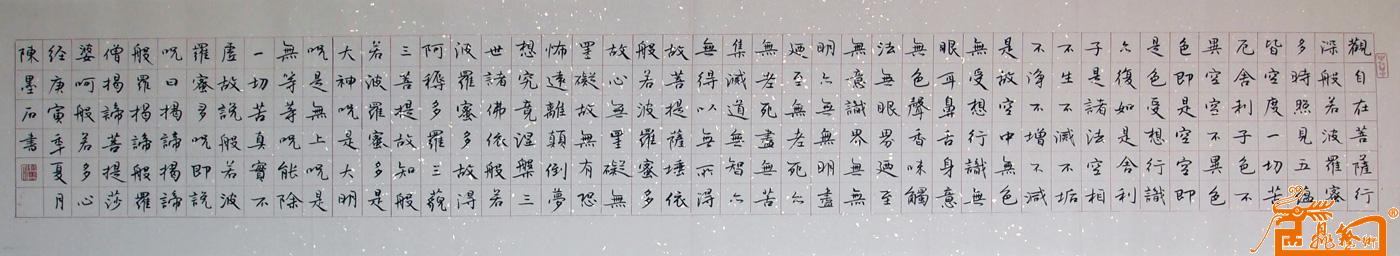 觀自在菩薩行
深般若波羅蜜
多時照見五蘊
皆空度一切苦
厄舍利子色不
異空空不異色
色即是空空即
是色受想行識
亦復如是舍利
子是諸法空相
不生不滅不垢
不淨不增不減
是故空中無色
無受想行識無
眼耳鼻舌身意
無色聲香味觸
法無眼界廼至
無意識界無無
明亦無無明盡
廼至無老死亦
無老死盡無苦
集滅道無智亦
無得以無所得
故菩提薩埵依
般若波羅蜜多
故心無罣礙無
罣礙故無有恐
怖遠離顛倒夢
想究竟涅槃三
世諸佛依般若
波羅蜜多故得
阿耨多羅三藐
三菩提故知般
若波羅蜜多是
大神呪是大明
呪是無上呪是
無等等呪能除
一切苦真實不
虛故說般若波
羅蜜多呪即說
呪曰揭諦揭諦
般羅揭諦般羅
僧揭諦菩提莎
婆呵般若多心
经庚寅年夏月
陳墨石書